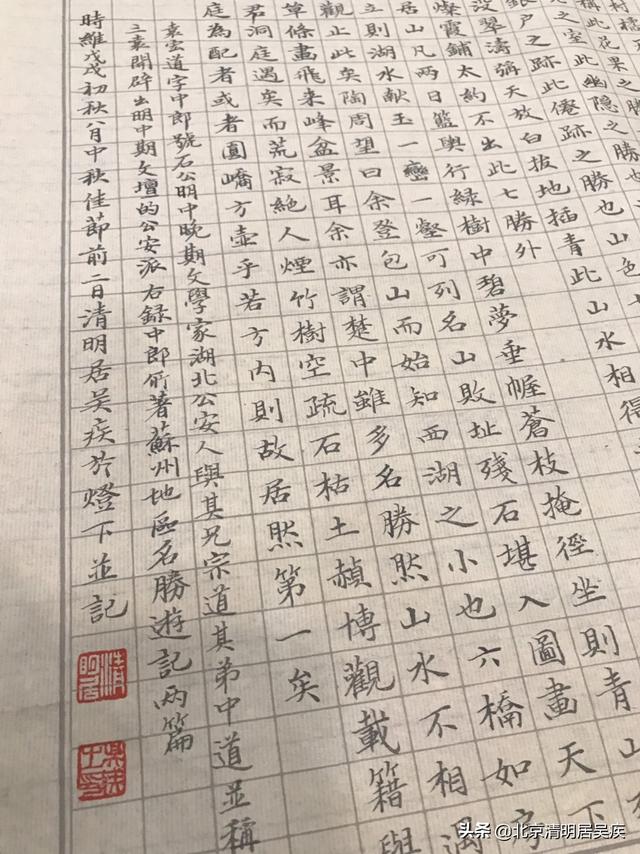 此花果之勝也
之室此幽隱之勝也
之跡此僊跡之勝也山色
沒翠濤彌天放白拔地插青此山水相得
燦霞鋪太約不出此七勝外
居山凡兩日籃輿行綠樹中碧夢垂幄蒼枝掩徑坐則青山
立則湖水献玉一巒一壑可列名山敗址殘石堪入圖畫天下
觀止此矣陶周望曰余登包山而始知西湖之小也六橋如房
單條畫飛來峰盆景耳余亦謂楚中雖多名勝然山水不相遇
君洞庭遇矣而荒寂絕人煙竹樹空疏石枯土赬博觀載籍與
庭為配者或者圓嶠方壺乎若方內則故居然第一矣
袁宏道字中郎號石公明中晚期文學家湖北公安人與其兄宗道其弟中道並稱
三袁開闢出明中期文壇的公安派右録中郎所著蘇州地區名勝遊記兩篇
時維戊戌初秋八月中秋佳節前二日清明居吴疾於燈下並記
清明居
头条 @北京清明居吴疾